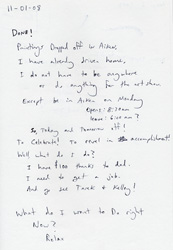 11-01-08
Done!
Paintings Dropped off in Aiken
I have already driven home,
I do not have to be anywhere
or do anything for the art show
Except be in Aiken on Monday
opens: 8:30am
leave: 6:00 am?
So, Today and Tomorrow off!
To Celebrate! To revel in the accomplishment!
Well what do I do?
I have $100 thanks to dad.
I need to get a job.
And go see Tarek & Kelley!
What do I want to Do right
Now?
Relax